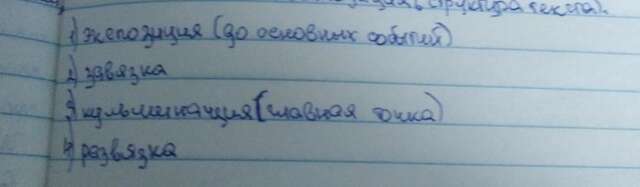 структура текста).
1) экспозиция (до основных событий)
2) завязка
3) кульминация (главная точка)
4) развязка